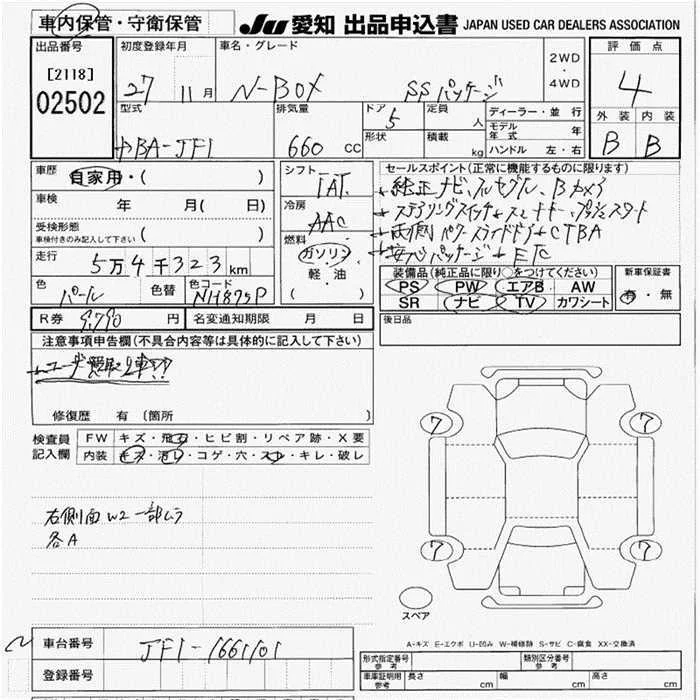 車内保管・守衛保管
JU 愛知 出品申込書 JAPAN USED CAR DEALERS ASSOCIATION
出品番号
[2118]
02502
初度登録年月
27 11月
車名・グレード
N-BOX SSパッケージ
2WD
・
4WD
評価点
4
外装 内装
B B
型式
DBA-JF1
排気量
660 CC
ドア
5
形状
定員
人
積載
kg
ディーラー・並行
モデル年式 年
ハンドル 左・右
車歴
自家用・( )
車検
年 月( 日)
受検形態
車検付きのみ記入して下さい ( )
走行
5万4千323km
色
パール
色替
色コード
NH875P
シフト
IAT
冷房
AAC
燃料
ガソリン
軽油
( )
セールスポイント(正常に機能するものに限ります)
純正ナビ、フルセグTV、Bカメラ
ステアリングスイッチ+スマートキー、プッシュスタート
両側パワースライドドア+CTBA
あんしんパッケージ+ETC
装備品(純正品に限り○をつけてください)
PS PW エアB AW
SR ナビ TV カワシート
新車保証書
有・無
R券 9,790 円
名変通知期限 月 日
後日品
注意事項申告欄(不具合内容等は具体的に記入して下さい)
ユーザー買取り車!!
修復歴 有〔箇所 〕
検査員記入欄
FW キズ・飛石・ヒビ割・リペア跡・X要
内装 キズ・汚レ・コゲ・穴・スレ・キレ・破レ
右側面W2一部ムラ
各A
7 7
7 7
スペア
A-キズ E-エクボ U-凹み W-補修跡 S-サビ C-腐食 XX-交換済
車台番号 JF1-1661101
登録番号
形式指定番号参考
類別区分番号参考
車庫証明用参考 長さ cm 幅 cm 高さ cm